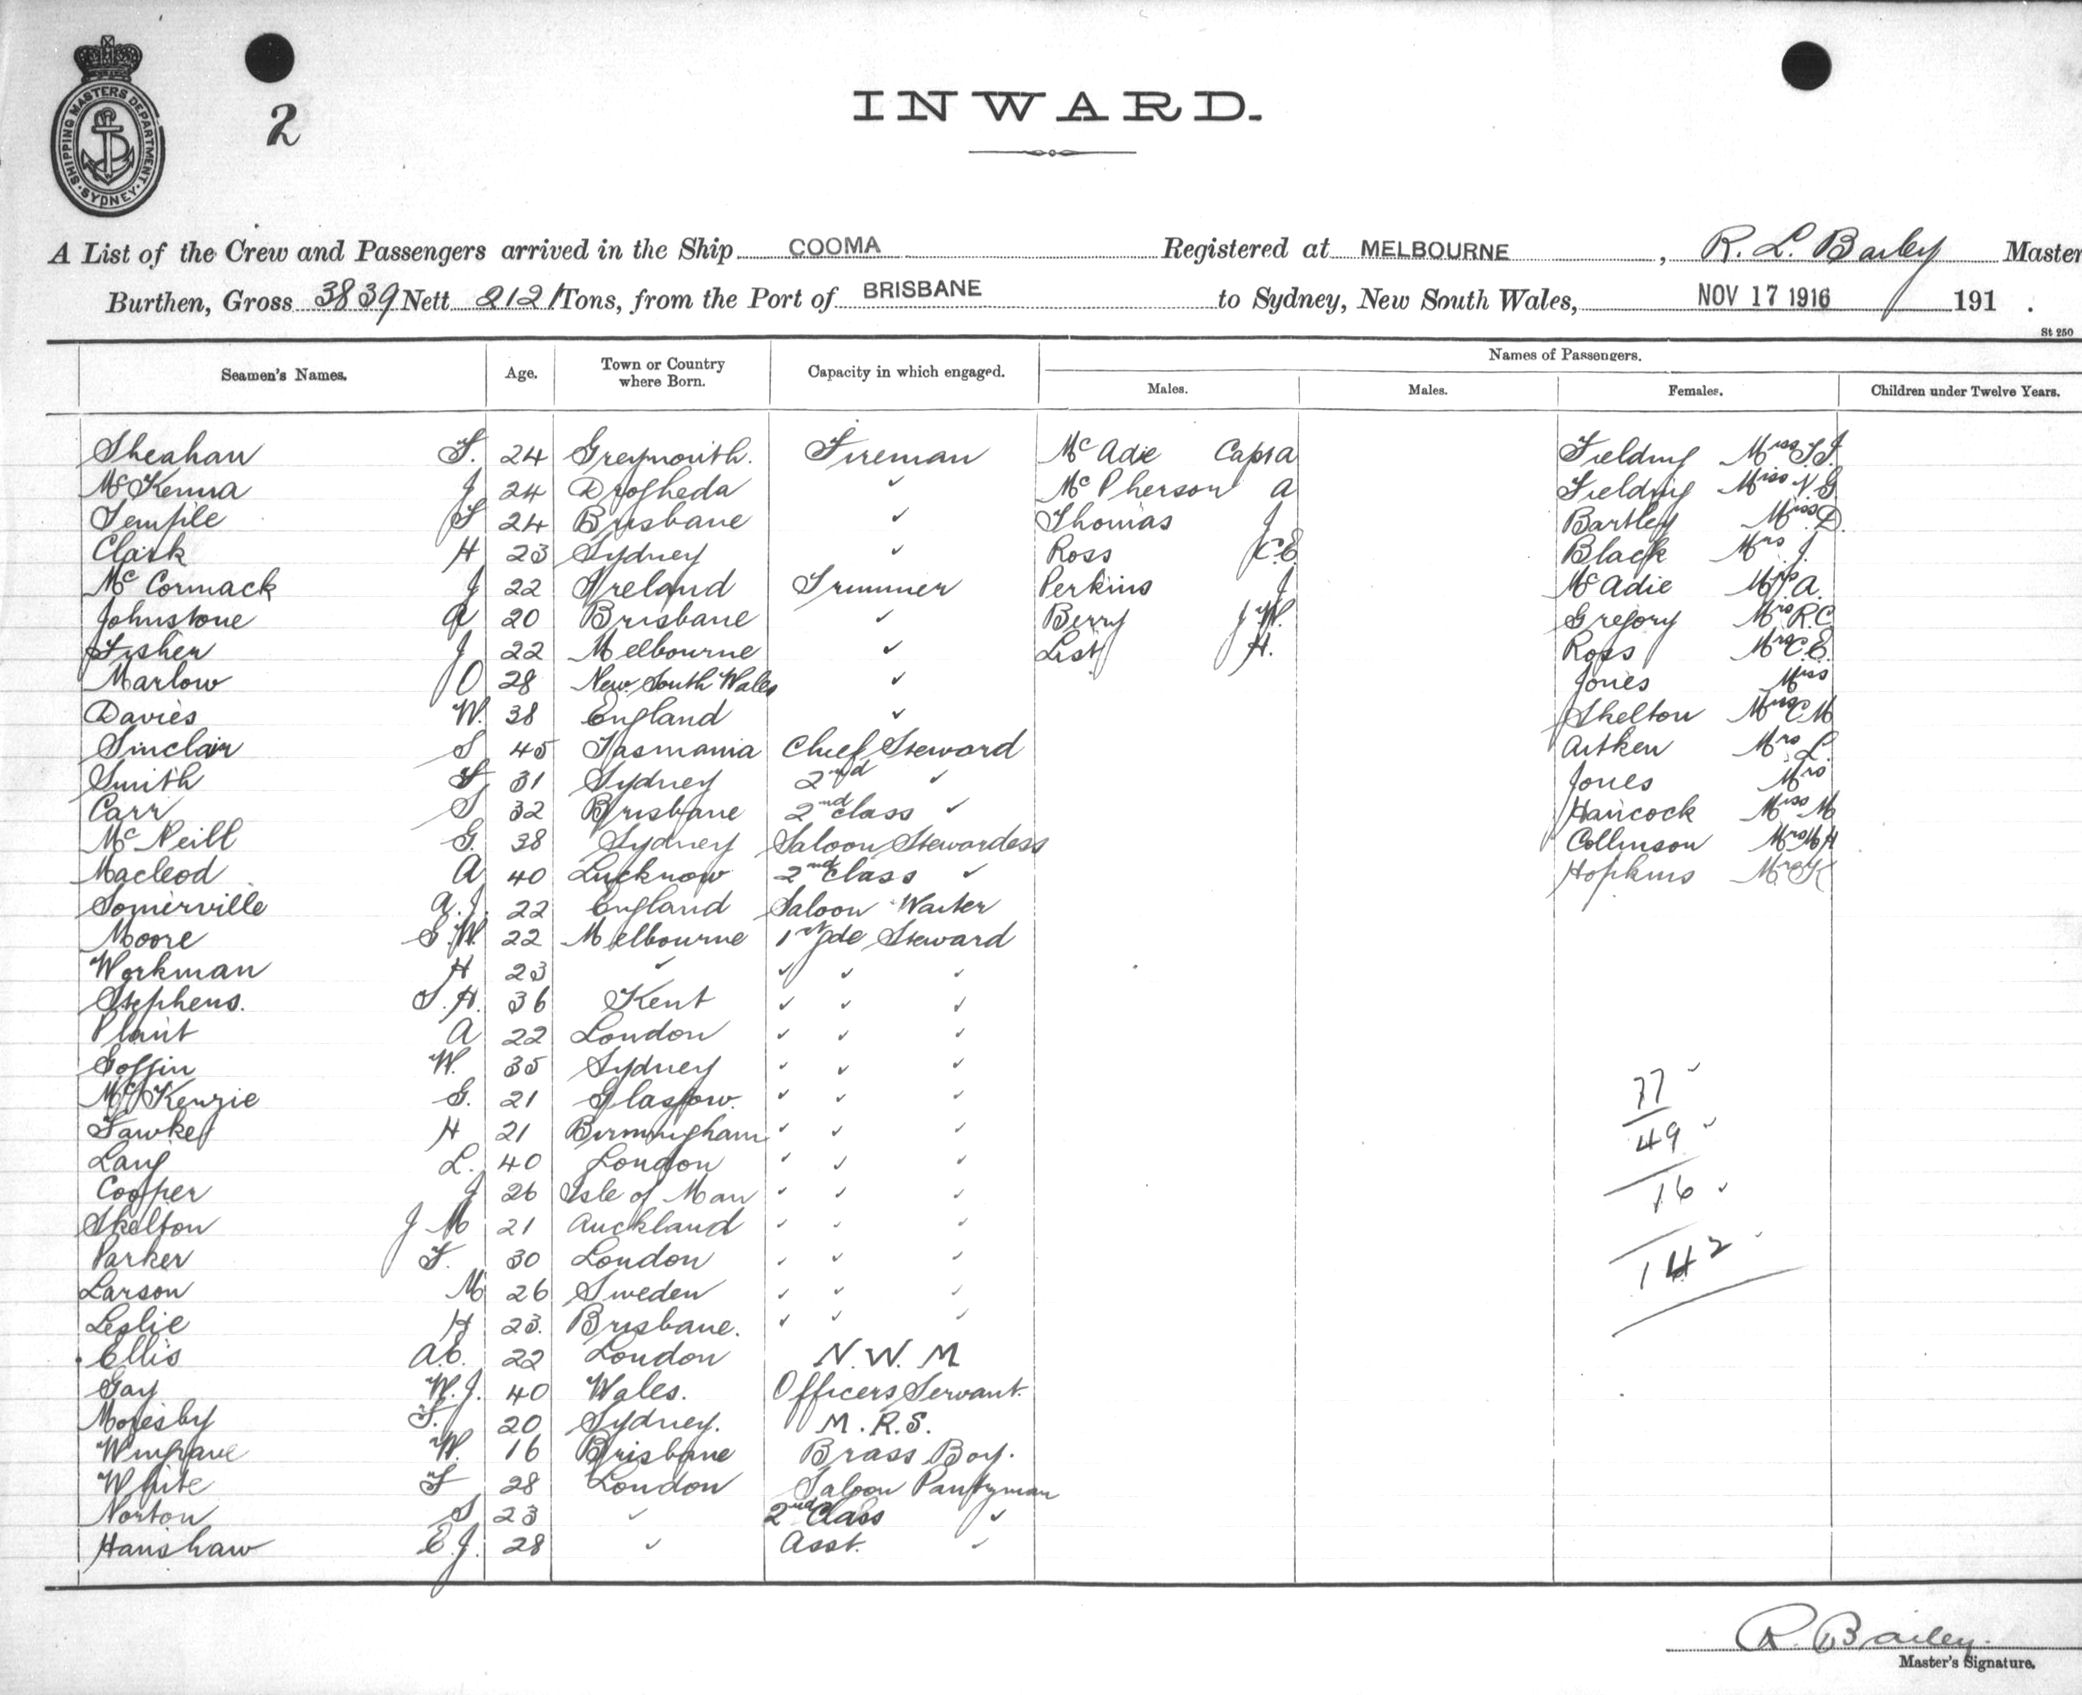 SHIPPING MASTERS DEPARTMENT · SYDNEY ·
2
INWARD.
A List of the Crew and Passengers arrived in the Ship COOMA Registered at MELBOURNE, R. L. Bailey Master
Burthen, Gross 3839 Nett 2121 Tons, from the Port of BRISBANE to Sydney, New South Wales, NOV 17 1916 191 .
St 250
Seamen's Names. Age. Town or Country where Born. Capacity in which engaged. Names of Passengers.
Males. Males. Females. Children under Twelve Years.
Sheahan F. 24 Greymouth. Fireman McAdie Capt A Fielding Miss F.J.
McKenna J 24 Drogheda ✓ McPherson A Fielding Miss N.G
Temple F 24 Brisbane ✓ Thomas J Bartley Miss D.
Clark H 23 Sydney ✓ Ross C.E. Black Mrs J.
McCormack J 22 Ireland Trimmer Perkins J McAdie Mrs A.
Johnstone A 20 Brisbane ✓ Berry J.W. Gregory Mrs R.C.
Fisher J 22 Melbourne ✓ List H. Ross Mrs C.E.
Marlow O 28 New South Wales ✓ Jones Miss
Davies W. 38 England ✓ Skelton Mrs C M
Sinclair S 45 Tasmania Chief Steward Aitken Mrs L.
Smith F 31 Sydney 2nd ✓ Jones Mrs
Carr S 32 Brisbane 2nd class ✓ Hancock Miss M
McNeill G. 38 Sydney Saloon Stewardess Collinson Mrs M H
Macleod A 40 Lucknow 2nd class ✓ Hopkins Mrs K
Somerville A.J. 22 England Saloon Waiter
Moore G.W. 22 Melbourne 1st gde Steward
Workman H 23 ✓ ✓ ✓ ✓
Stephens. S.H. 36 Kent ✓ ✓ ✓
Plant A 22 London ✓ ✓ ✓
Goffin W. 35 Sydney ✓ ✓ ✓
McKenzie G. 21 Glasgow. ✓ ✓ ✓
Fawkes H 21 Birmingham ✓ ✓ ✓
Lang L. 40 London ✓ ✓ ✓
Cooper J 26 Isle of Man ✓ ✓ ✓
Skelton J M 21 Auckland ✓ ✓ ✓
Parker F. 30 London ✓ ✓ ✓
Larson M 26 Sweden ✓ ✓ ✓
Leslie H 23. Brisbane. ✓ ✓ ✓
Ellis A.E. 22 London N.W.M
Gay W.J. 40 Wales. Officers Servant.
Moresby F. 20 Sydney. M.R.S.
Wingrave W. 16 Brisbane Brass Boy.
White F 28 London Saloon Pantryman
Norton S 23 ✓ 2nd Class ✓
Hanshaw E J. 28 ✓ Asst. ✓
77 ✓
49 ✓
16 ✓
142
R. Bailey.
Master's Signature.